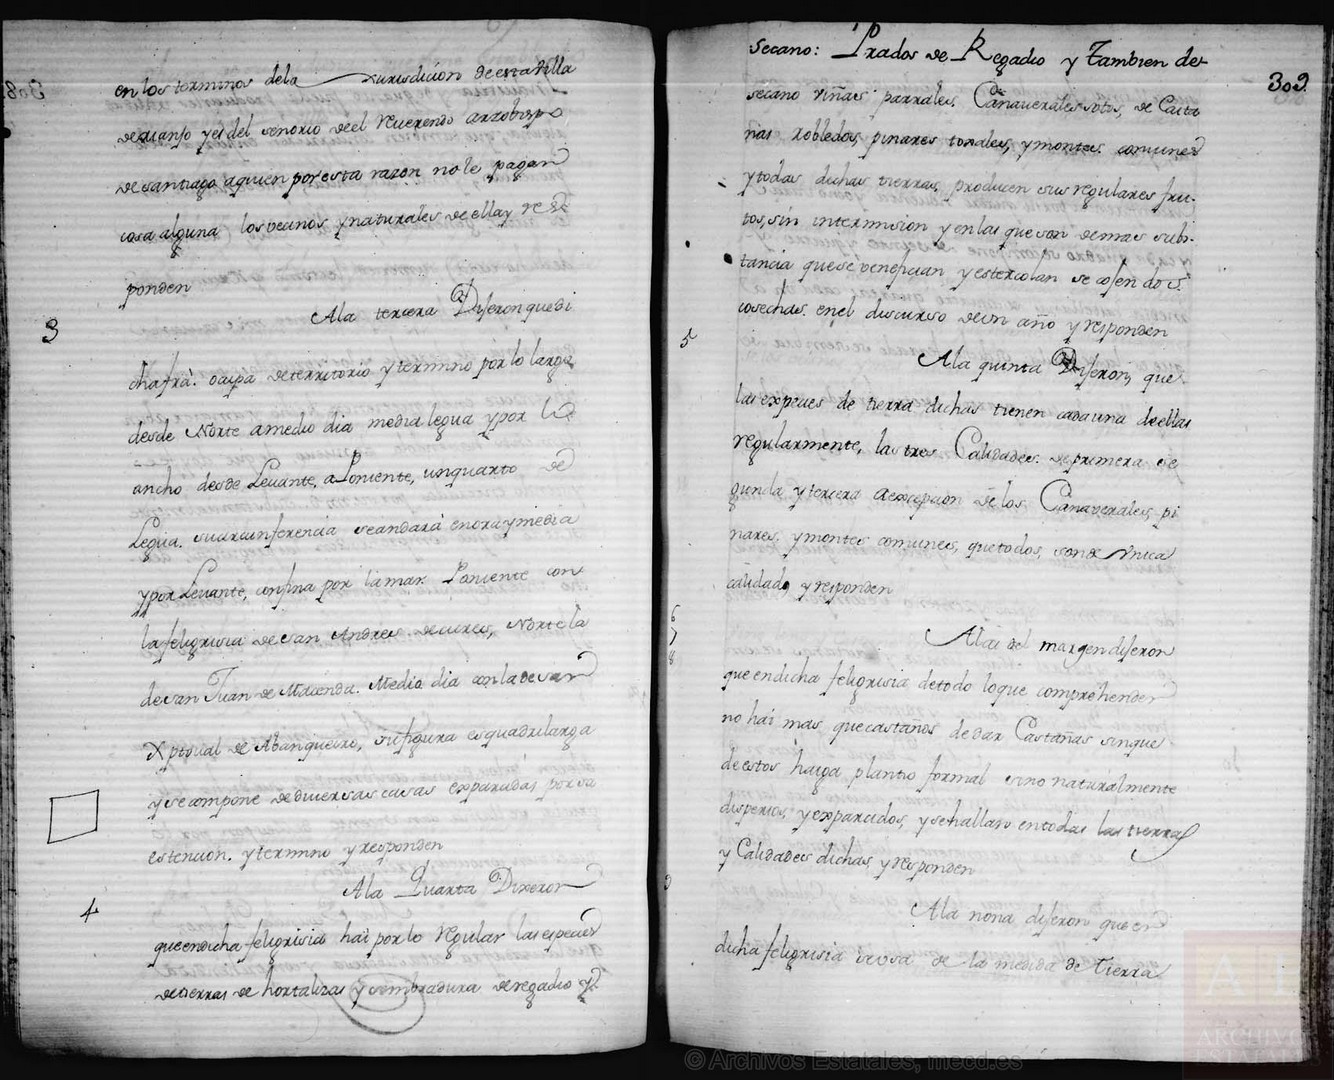 en los terminos dela Jurisdicion de esta Villa
de rianjo y es del senorio de el reverendo arzobispo
de santiago aquien por esta razon no le pagan
cosa alguna los vecinos y naturales de ella y res
ponden
3
Ala tercera Diferon que di
cha fra. ocupa de territorio y termino por lo largo
desde Norte a medio dia media legua y por lo
ancho desde Levante, a Poniente, un quarto de
Legua. su circunferencia se andará en ora y media
y por Levante, confina por la mar. Poniente con
la feligrisia de san Andres de cures, Norte la
de san Juan de Macenda. Medio dia con la de san
Xptoual de Abanqueiro, su figura es quadrilarga
y se compone de diversas casas exparcidas por su
estencion. y termino y responden
4
Ala Quarta Dixeron
que en dicha feligrisia hai por lo regular las especies
de tierras de hortaliza y sembradura de regadio y
309
secano: Prados de Regadio y tambien de
secano viñas parrales, Cañaverales sotos, de Casta
nias robledos, pinares toxales, y montes comunes
y todas dichas tierras, producen sus regulares fru-
tos, sin intermision y en las que son de mas subs-
tancia que se venefician y estercolan se cojen dos
cosechas en el discurso de un año y responden
5
Ala quinta Diferon, que
las expecies de tierra dichas tienen cada una de ellas
regularmente, las tres Calidades de primera se
gunda y tercera a excepcion de los Cañaverales, pi
nares, y montes comunes, que todos, son de vnica
calidad, y responden
6
7
8
Alas del margen diferon
que en dicha feligrisia de todo lo que comprehenden
no hai mas que castaños de dar Castañas sin que
de estos haiga plantio formal sino naturalmente
dispersos, y exparcidos, y se hallan en todas las tierras
y Calidades dichas, y responden
9
Ala nona diferon que en
dicha feligrisia se usa de la medida de tierra
© Archivos Estatales, mecd.es
ARCHIVOS
ESTATALES